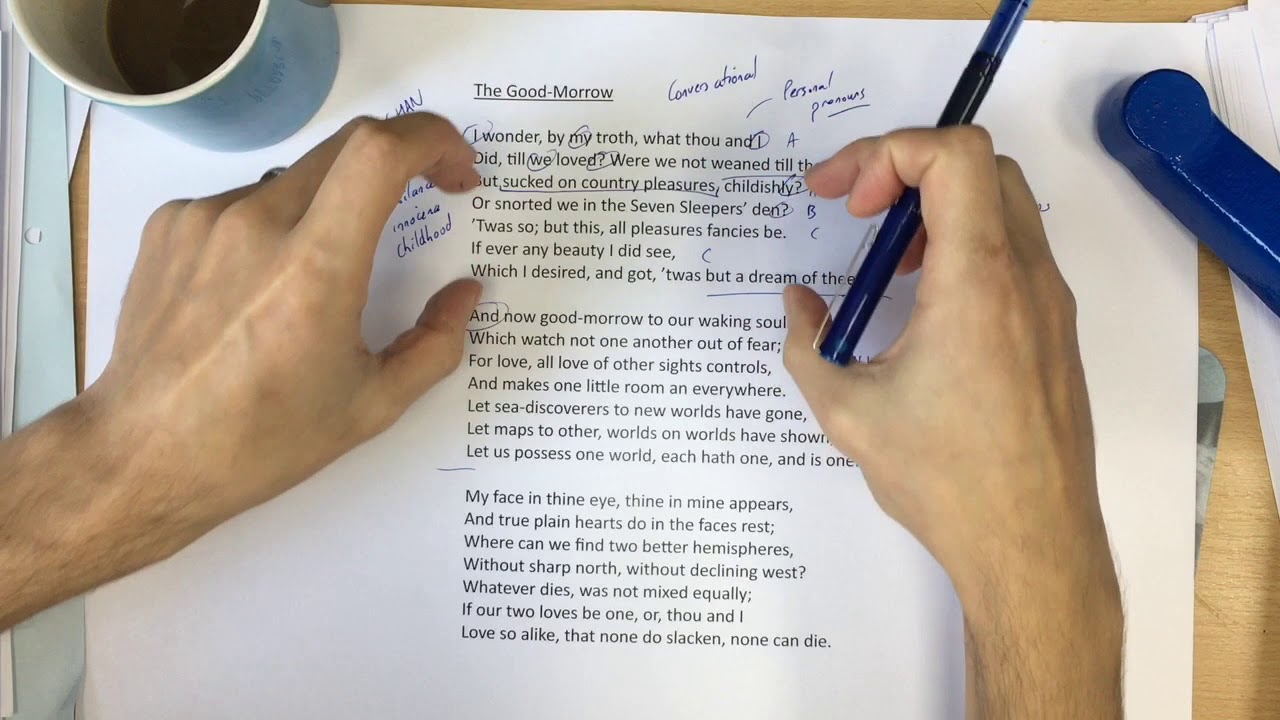 The Good-Morrow
Conversational
Personal
pronouns
I wonder, by my troth, what thou and I A
Did, till we loved? Were we not weaned till
But sucked on country pleasures, childishly?
Or snorted we in the Seven Sleepers' den? B
'Twas so; but this, all pleasures fancies be. C
If ever any beauty I did see, C
Which I desired, and got, 'twas but a dream of thee
innocence
childhood
And now good-morrow to our waking soul
Which watch not one another out of fear;
For love, all love of other sights controls,
And makes one little room an everywhere.
Let sea-discoverers to new worlds have gone,
Let maps to other, worlds on worlds have shown,
Let us possess one world, each hath one, and is one.
My face in thine eye, thine in mine appears,
And true plain hearts do in the faces rest;
Where can we find two better hemispheres,
Without sharp north, without declining west?
Whatever dies, was not mixed equally;
If our two loves be one, or, thou and I
Love so alike, that none do slacken, none can die.